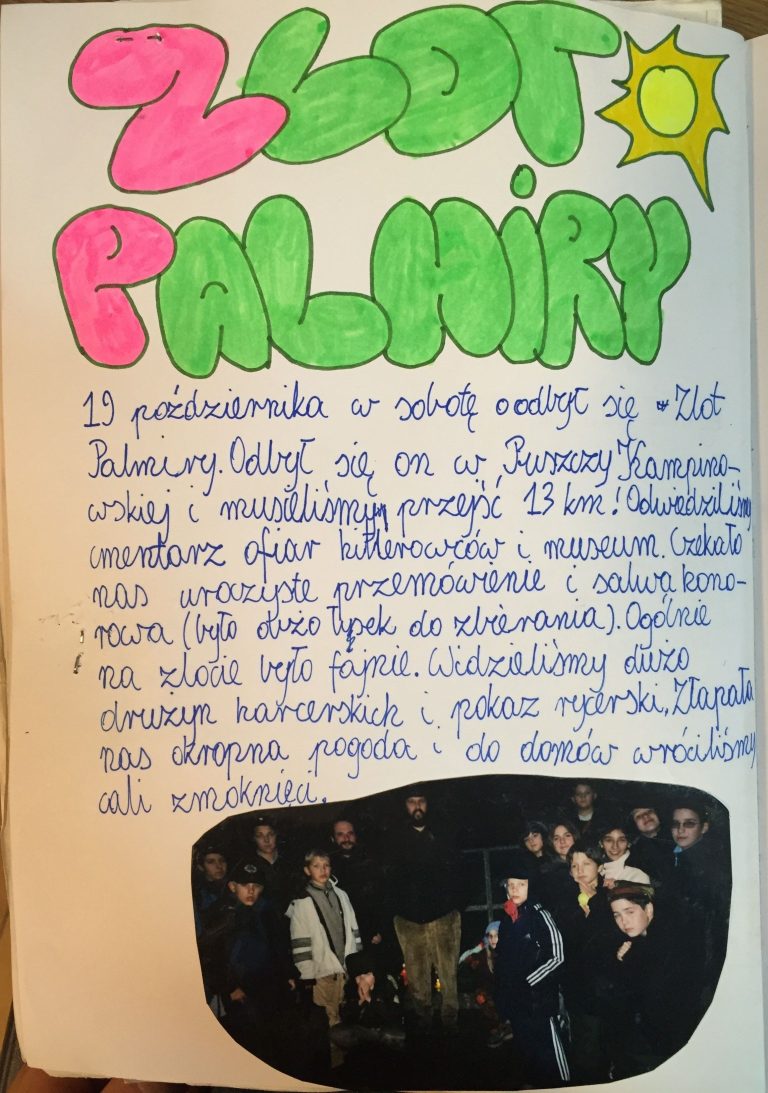 ZLOT
PALMIRY
19 października w sobotę odbył się Zlot
Palmiry. Odbył się on w Puszczy Kampino-
wskiej i musieliśmy przejść 13 km! Odwiedziliśmy
cmentarz ofiar hitlerowców i museum. Czekało
nas uroczyste przemówienie i salwa kono-
rowa (było dużo łysek do zbierania). Ogólnie
na zlocie było fajnie. Widzieliśmy dużo
drużyn harcerskich i pokaz rycerski. Złapała
nas okropna pogoda i do domów wróciliśmy
cali zmoknięci.